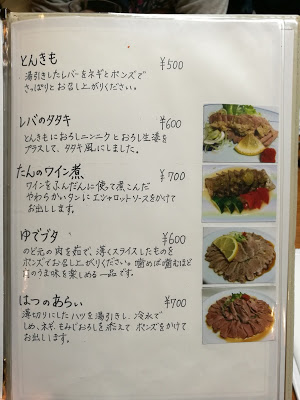 とんきも ¥500
湯引きしたレバーをネギとポンズで
さっぱりとお召し上がりください。
レバのタタキ ¥600
とんきもにおろしニンニクとおろし生姜を
プラスして、タタキ風にしました。
たんのワイン煮 ¥700
ワインをふんだんに使って煮こんだ
やわらかいタンにエシャロットソースをかけて
お出しします。
ゆでブタ ¥600
のど元の肉を茹で、薄くスライスしたものを
ポンズでお召し上がりください。噛めば噛むほど
のうま味を楽しめる一品です。
はつのあらい ¥700
薄切りにしたハツを湯引きし、冷水で
しめ、ネギ、もみじおろしを添えて ポンズをかけて
お出しします。